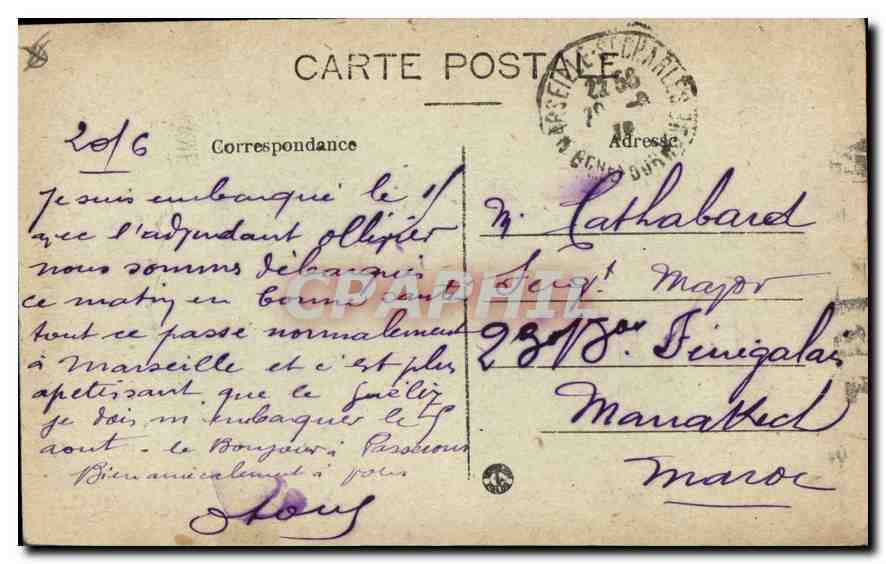 CARTE POSTALE
MARSEILLE-ST CHARLES
22 50
BCHES DU RHONE
Correspondance
Adresse
20/6
Je suis embarqué le 15
avec l'adjudant Ollivier
nous sommes débarqués
ce matin en bonne santé
tout ce passe normalement
à Marseille et c'est plus
apetissant que le Guéliz
je dois m'embarquer le 5
aout. le Bonjour à
Bien amicalement à vous
M. Cathabard
Sergt Major
Bon Sénégalais
Marrakech
Maroc
CPAPHIL